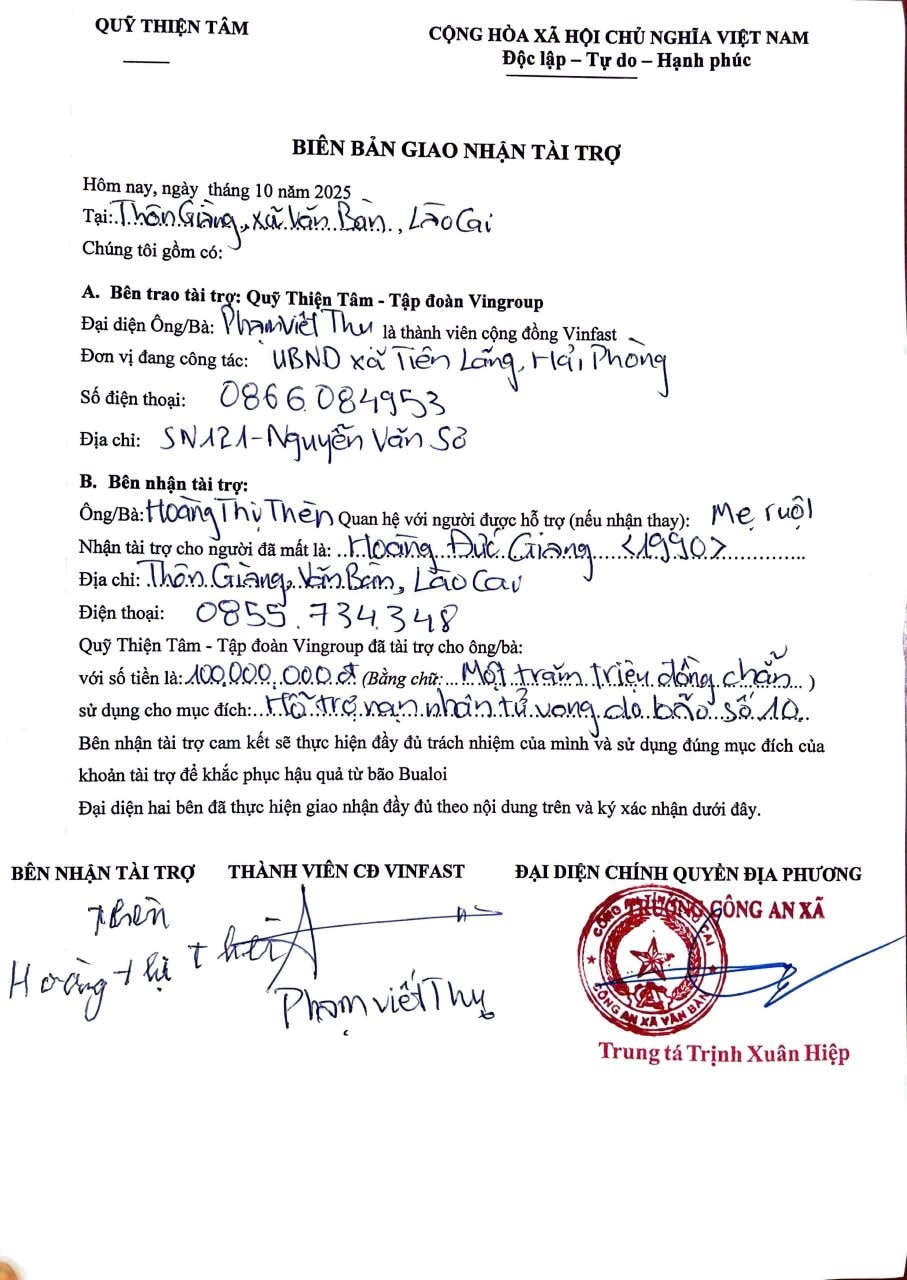 QUỸ THIỆN TÂM
CỘNG HÒA XÃ HỘI CHỦ NGHĨA VIỆT NAM
Độc lập – Tự do – Hạnh phúc
BIÊN BẢN GIAO NHẬN TÀI TRỢ
Hôm nay, ngày tháng 10 năm 2025
Tại: Thôn Giàng, xã Văn Bàn, Lào Cai
Chúng tôi gồm có:
A. Bên trao tài trợ: Quỹ Thiện Tâm - Tập đoàn Vingroup
Đại diện Ông/Bà: Phạm Viết Thụ là thành viên cộng đồng Vinfast
Đơn vị đang công tác: UBND xã Tiên Lãng, Hải Phòng
Số điện thoại: 0866.084953
Địa chỉ: SN121-Nguyễn Văn Sơ
B. Bên nhận tài trợ:
Ông/Bà: Hoàng Thị Thèn Quan hệ với người được hỗ trợ (nếu nhận thay): Mẹ ruột
Nhận tài trợ cho người đã mất là: Hoàng Đức Giang <1990>
Địa chỉ: Thôn Giàng, Văn Bàn, Lào Cai
Điện thoại: 0855.734.348
Quỹ Thiện Tâm - Tập đoàn Vingroup đã tài trợ cho ông/bà:
với số tiền là: 100.000.000.đ (Bằng chữ: Một trăm triệu đồng chẵn )
sử dụng cho mục đích: Hỗ trợ nạn nhân tử vong do bão số 10
Bên nhận tài trợ cam kết sẽ thực hiện đầy đủ trách nhiệm của mình và sử dụng đúng mục đích của
khoản tài trợ để khắc phục hậu quả từ bão Bualoi
Đại diện hai bên đã thực hiện giao nhận đầy đủ theo nội dung trên và ký xác nhận dưới đây.
BÊN NHẬN TÀI TRỢ THÀNH VIÊN CĐ VINFAST ĐẠI DIỆN CHÍNH QUYỀN ĐỊA PHƯƠNG
TRƯỞNG CÔNG AN XÃ
Thèn
Hoàng thị thèn
Phạm Viết Thụ
CÔNG AN XÃ VĂN BÀN
Trung tá Trịnh Xuân Hiệp